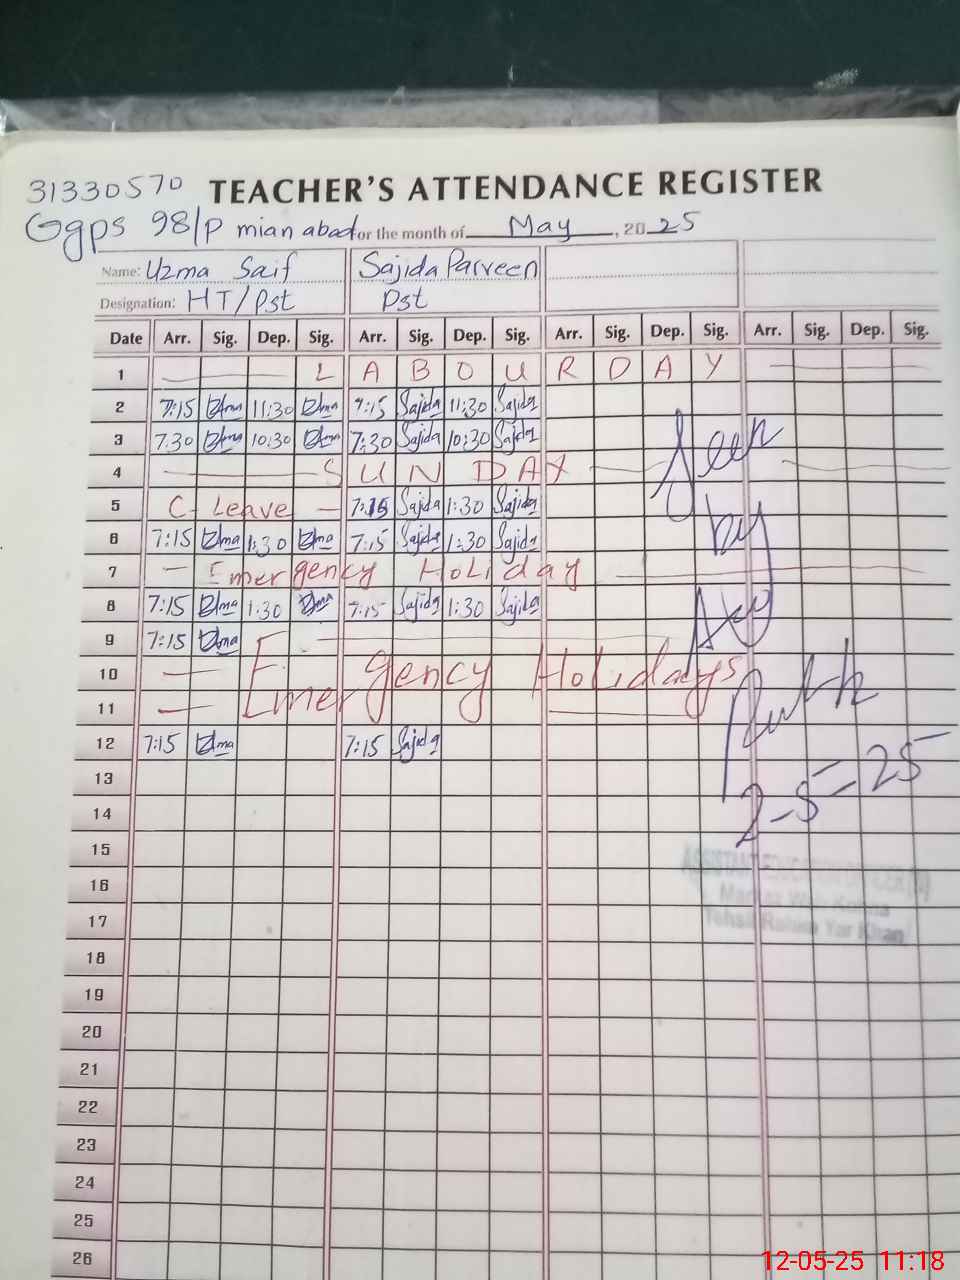 31330570 TEACHER'S ATTENDANCE REGISTER
Ggps 98/P mian abad for the month of May, 2025
Name: Uzma Saif Sajida Parveen
Designation: HT/Pst Pst
Date Arr. Sig. Dep. Sig. Arr. Sig. Dep. Sig. Arr. Sig. Dep. Sig. Arr. Sig. Dep. Sig.
1 LABOUR DAY
2 7:15 Uzma 11:30 Uzma 7:15 Sajida 11:30 Sajida
3 7:30 Uzma 10:30 Uzma 7:30 Sajida 10:30 Sajida
4 SUNDAY
5 C Leave 7:15 Sajida 1:30 Sajida
6 7:15 Uzma 1:30 Uzma 7:15 Sajida 1:30 Sajida
7 Emergency Holiday
8 7:15 Uzma 1:30 Uzma 7:15 Sajida 1:30 Sajida
9 7:15 Uzma
10 Emergency Holidays
11
12 7:15 Uzma 7:15 Sajida
13
14
15
16
17
18
19
20
21
22
23
24
25
26
Seen
by
2-5-25
ASSISTANT EDUCATION OFFICER
Tehsil Rahim Yar Khan
12-05-25 11:18